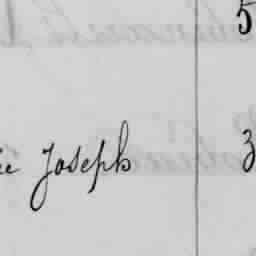 5
Joseph 3